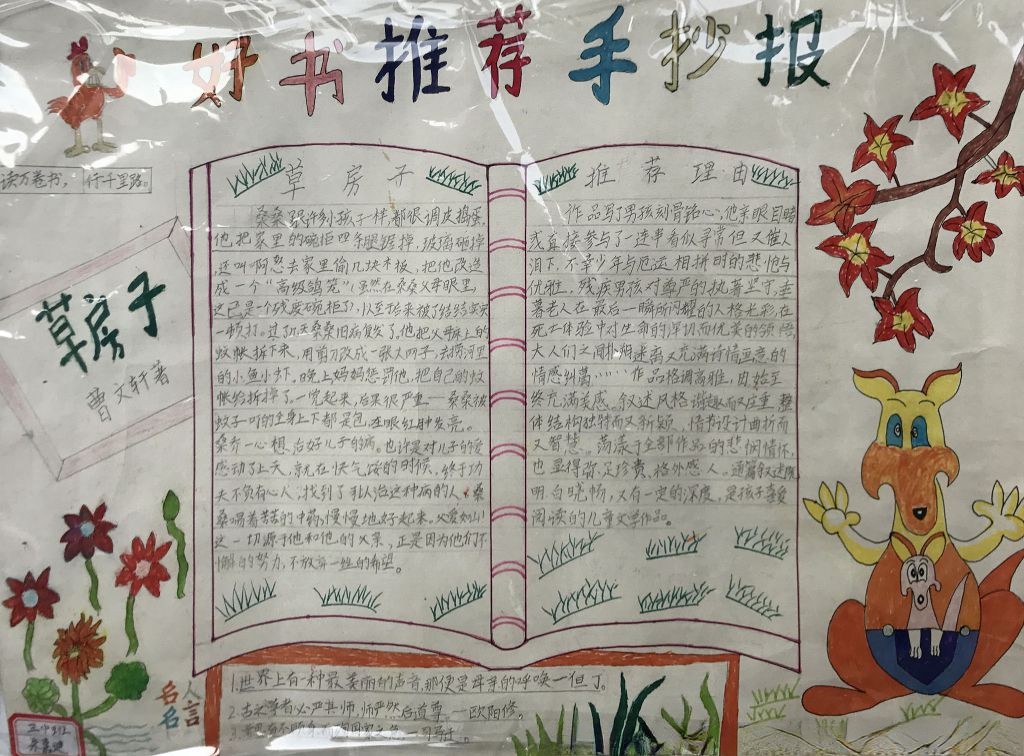 好书推荐手抄报
读万卷书，行千里路。
草房子
曹文轩著
草房子
桑桑跟许多孩子一样都很调皮捣蛋,
他把家里的碗柜四条腿锯掉，玻璃砸掉
还叫阿恕去家里偷几块木板，把他改造
成一个“高级鸽笼”！虽然在桑桑父母眼里，
这已是个残废碗柜了，以至后来被了结结实实
一顿打。过几天桑桑旧病复发了。他把父母床上的
蚊帐拆下来，用剪刀改成一张大网子，去捞河里
的小鱼小虾。晚上妈妈惩罚他，把自己的蚊
帐给拆掉了，一觉起来，后果很严重——桑桑被
蚊子叮的全身上下都是包，左眼红肿发亮。
桑乔一心想治好儿子的病。也许是对儿子的爱
感动了上天，就在快气馁的时候，终于功
夫不负有心人，找到了自认治这种病的人，桑
桑喝着苦苦的中药，慢慢地好起来。父爱如山！
这一切源于他和他的父亲，正是因为他们不
懈的努力，不放弃一丝的希望。
推荐理由
作品写了男孩刻骨铭心，他亲眼目睹
或直接参与了一连串看似寻常但又催人
泪下，不幸少年与厄运相拼时的悲怆与
优雅，残疾男孩对尊严的执着坚守，垂
暮老人在最后一瞬所闪耀的人格光彩，在
死亡体验中对生命的深切而优美的领悟，
大人们之间扑朔迷离又充满诗情画意的
情感纠葛……作品格调高雅，由始至
终充满美感。叙述风格谐趣而又庄重，整
体结构独特而又新颖，情节设计曲折而
又智慧。荡漾于全部作品的悲悯情怀，
也显得弥足珍贵、格外感人。通篇叙述既
明白晓畅，又有一定的深度，是孩子喜爱
阅读的儿童文学作品。
名人名言
1.世界上有一种最美丽的声音，那便是母亲的呼唤—但丁。
2.古之学者必严其师，师严然后道尊。—欧阳修。